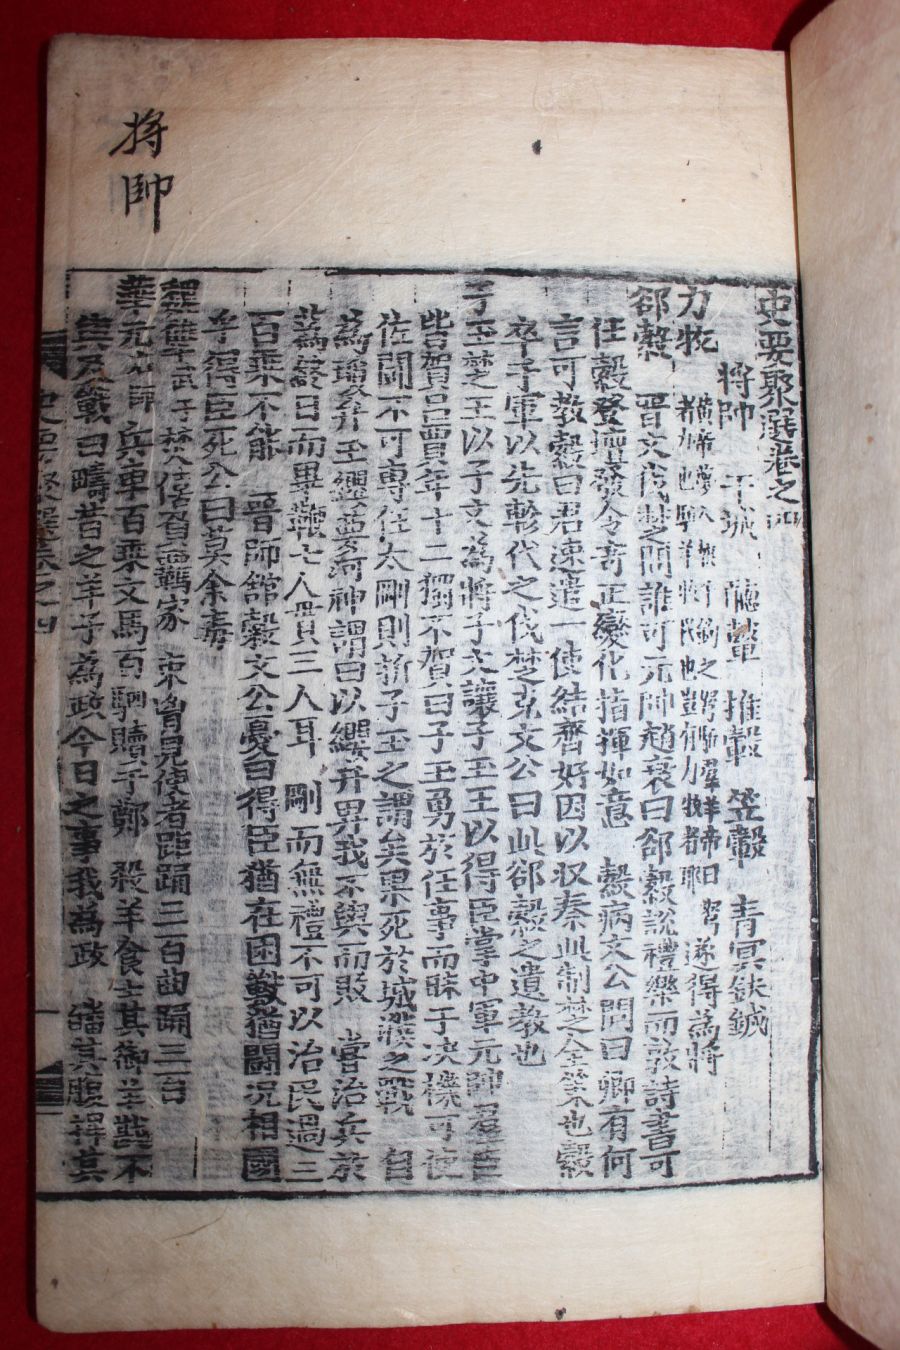 將帥
史要聚選卷之四
將帥 干城 推轂 笠轂 青冥鈇鉞
力牧 遂得為將
郤縠 晋文伐楚問誰可元帥趙衰曰郤縠說禮樂而敦詩書可
任縠登壇發令奇正變化指揮如意 縠病文公問曰卿有何
言可教縠曰君速遣一使結齊好因以収秦此制楚之全筞也縠
卒子軍以先軫代之伐楚克文公曰此郤縠之遺教也
子玉楚王以子文為將子文讓子玉王以得臣掌中軍元帥君臣
皆賀呂賈年十二獨不賀曰子玉勇於任事而昧于决機可使
佐闘不可專任太剛則折子玉之謂矣果死於城濮之戰 自
為瓊弁玉纓夢河神謂曰以纓弁畀我不與而敗 嘗治兵於
蔿終日而畢鞭七人貫三人耳 剛而無禮不可以治民過三
百乘不能 晋師館糓文公憂曰得臣猶在困獸猶闘况相國
乎得臣死公曰莫余毒
魏犨 束胸見使者距踊三百曲踊三百
華元 兵車百乘文馬百駟贖于鄭 殺羊食士其御羊斟不
與及戰曰疇昔之羊子為政今日之事我為政 皤其腹捍其